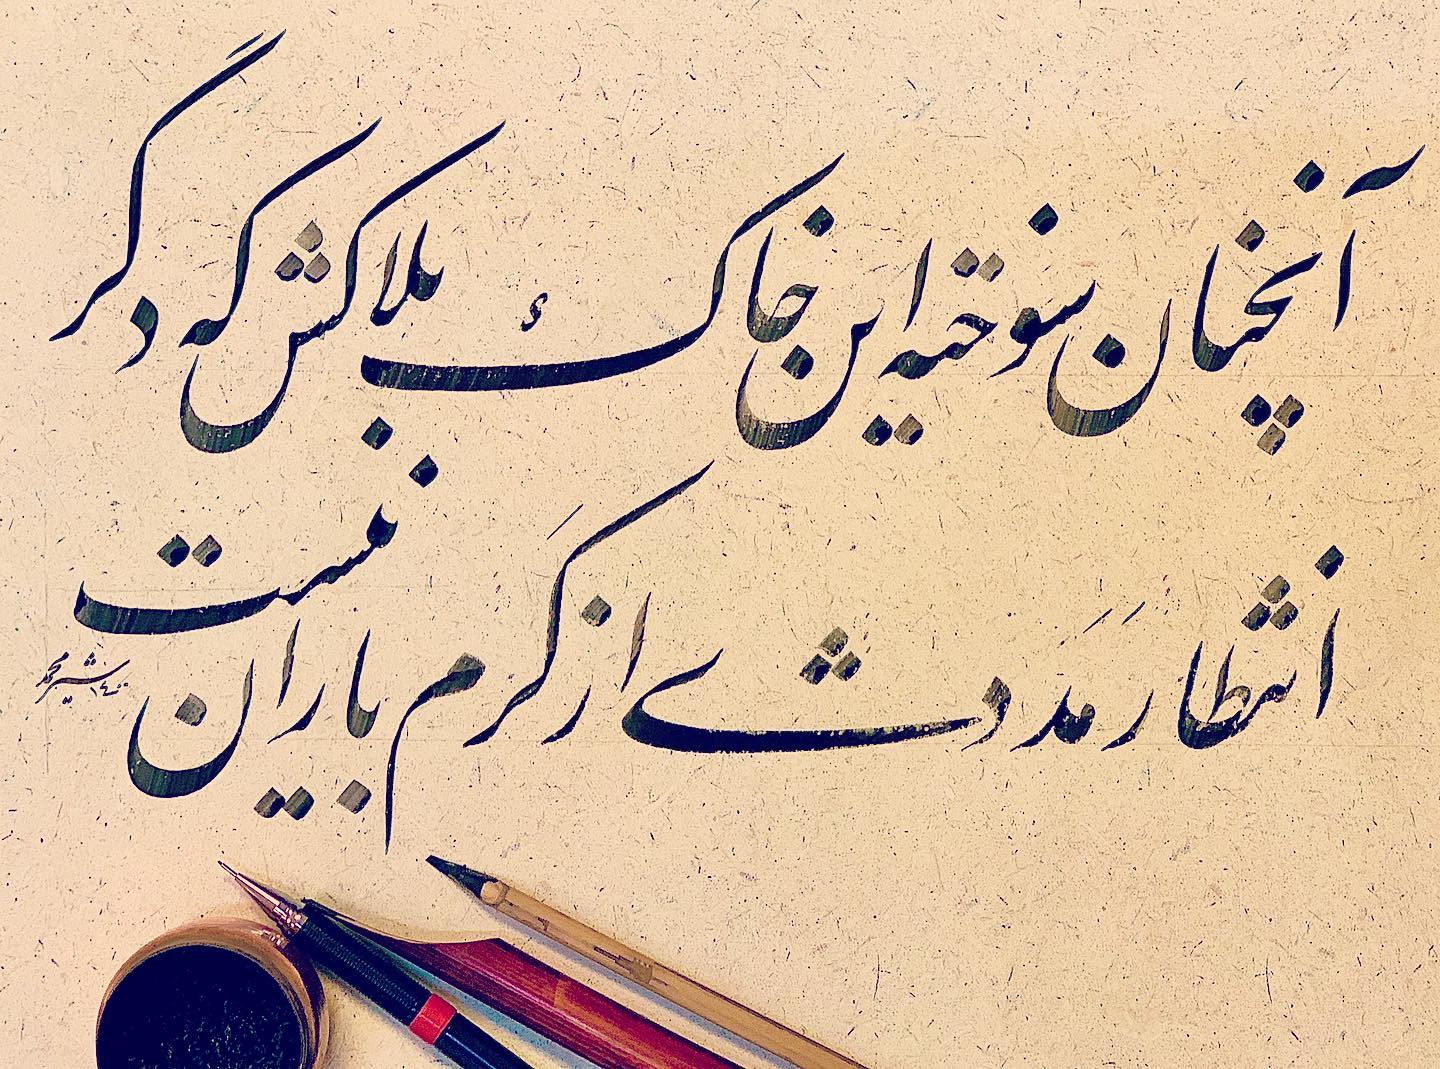 آنچنان سوخته این خاکِ بلاکش که دگر
انتظار مَددی از کرم باران نیست
۱۴۰۰